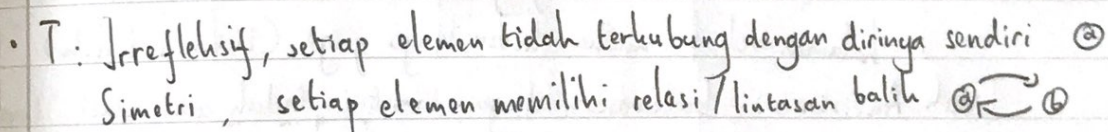 • T : Irrefleksif, setiap elemen tidak terhubung dengan dirinya sendiri ⓐ
Simetri, setiap elemen memiliki relasi / lintasan balik ⓐ ⓑ